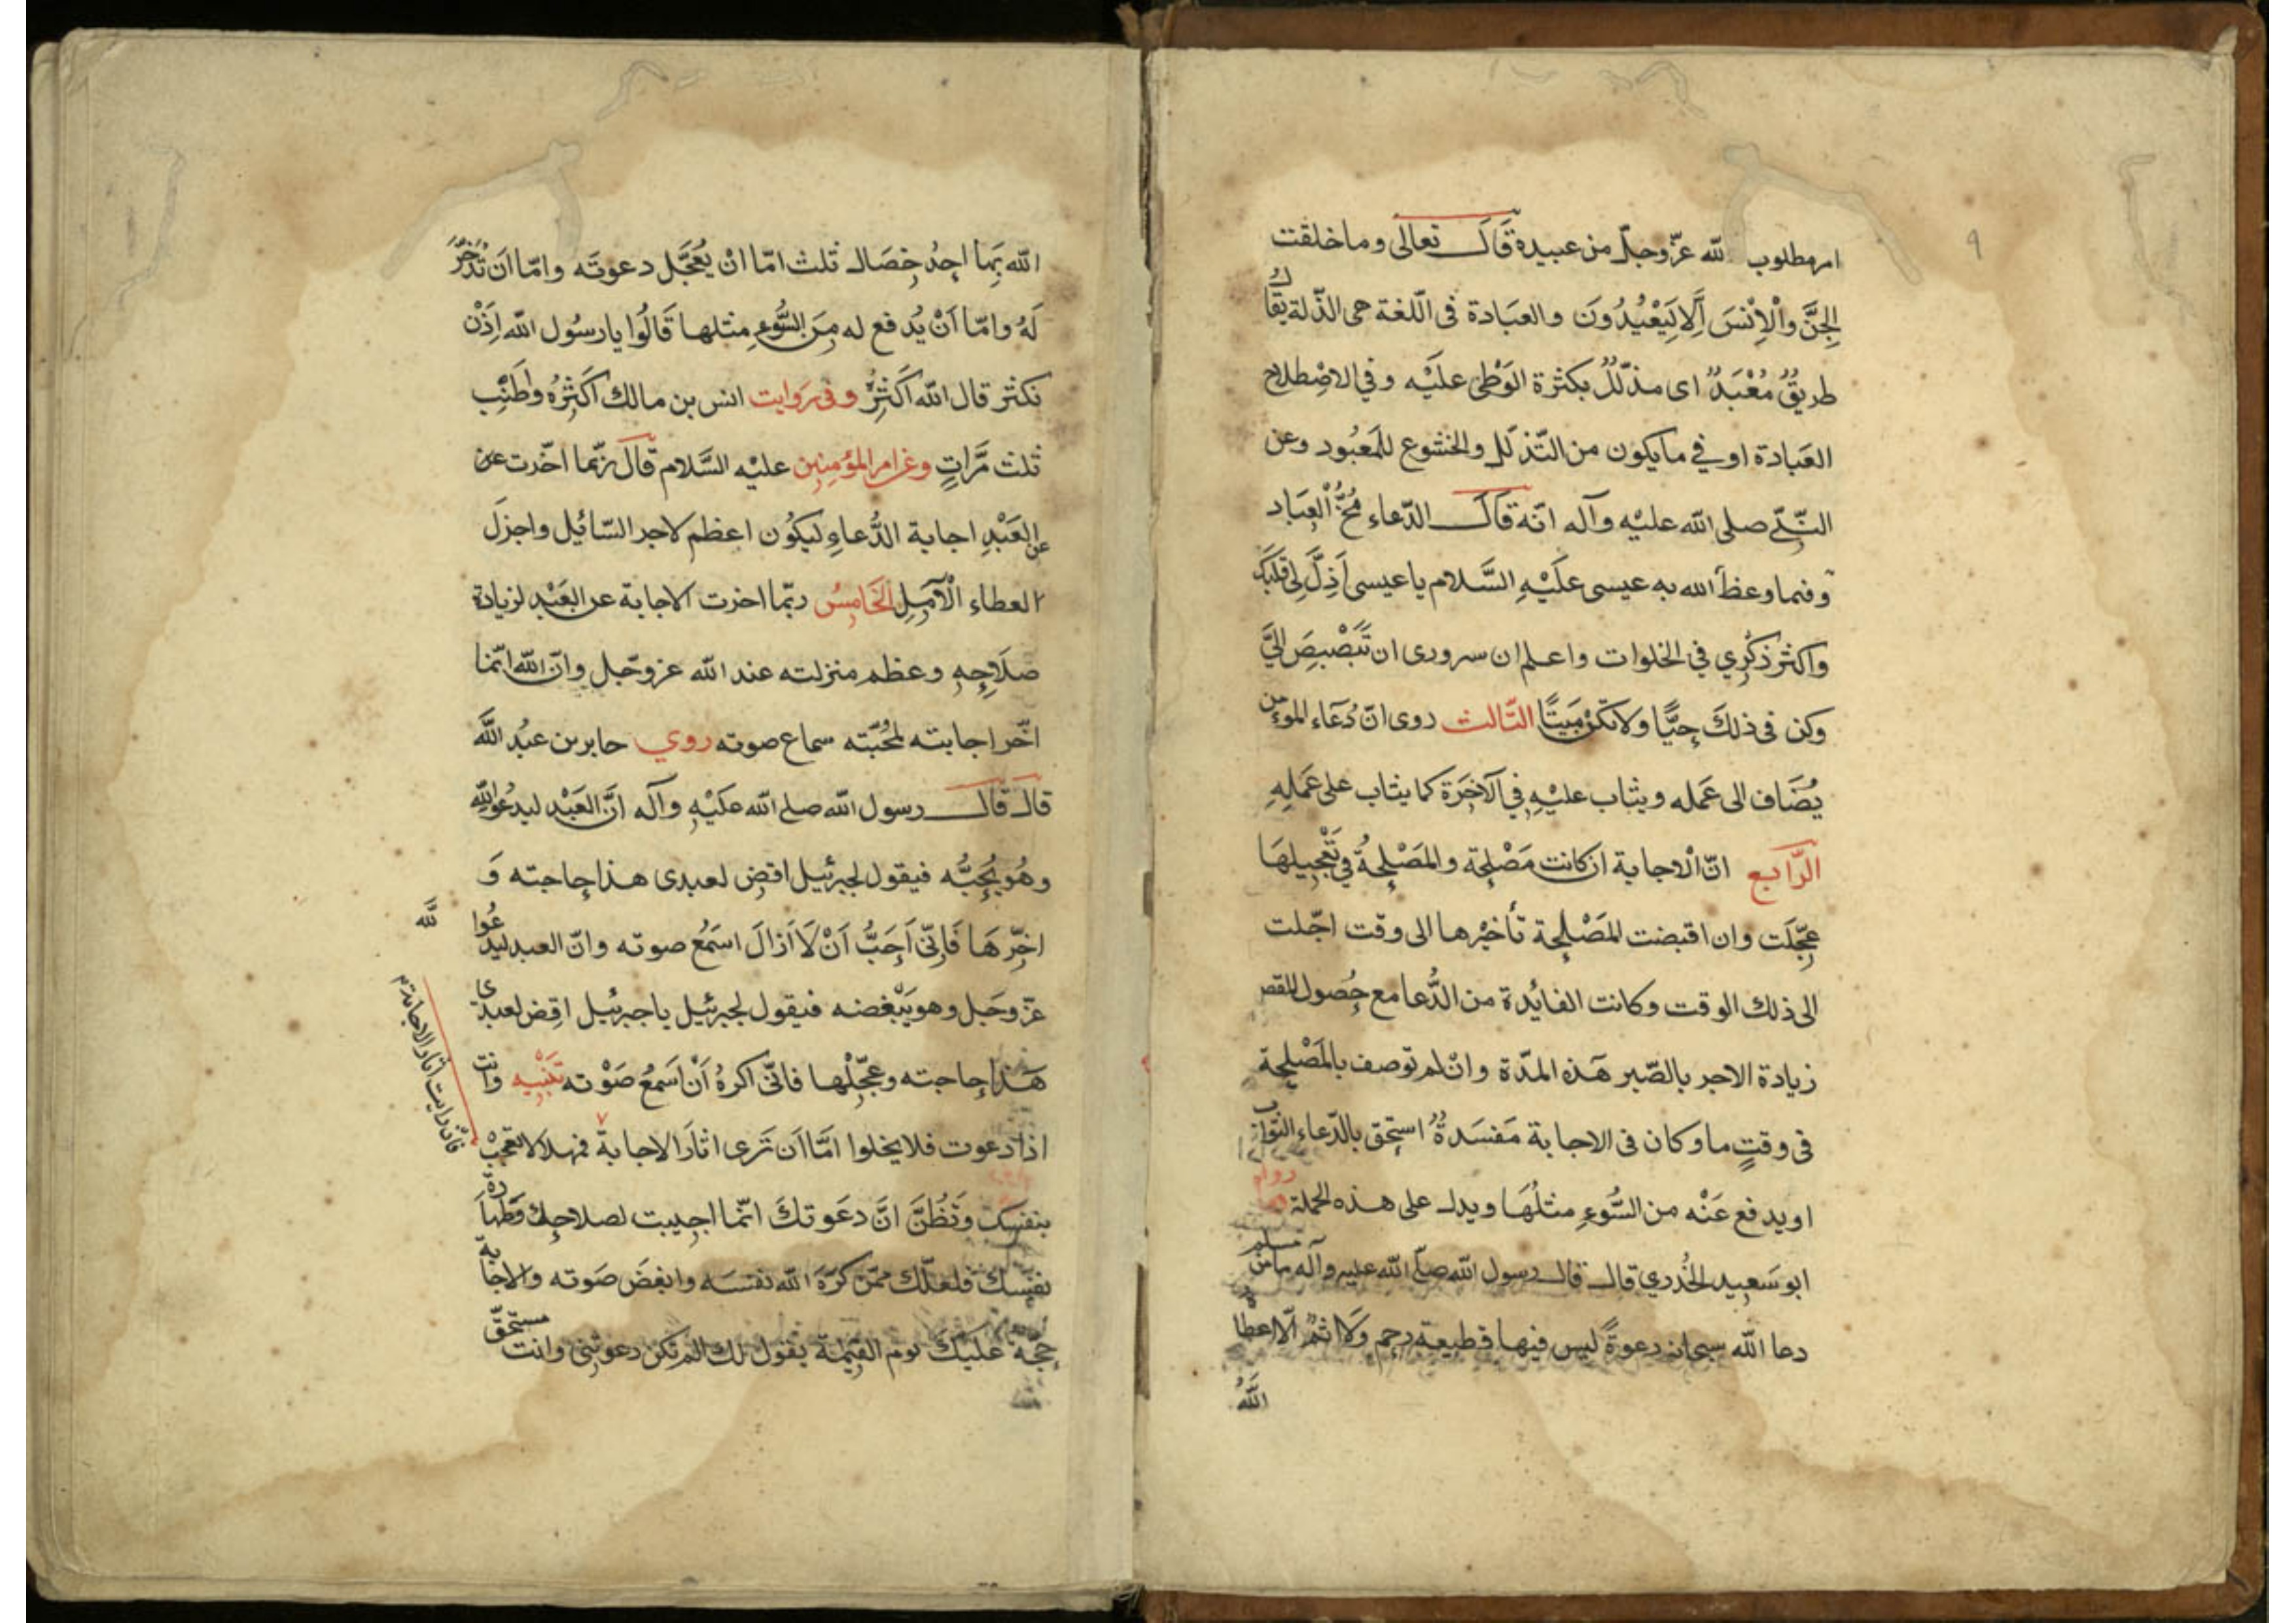 ٩
امر مطلوب لله عزّ وجلّ من عبيده قَالَ تعالى وما خلقت
الجِنَّ وَالْاِنْسَ اَلَّا لِيَعْبُدُونَ والعبَادة فى اللّغة هى الذّلة يقَالُ
طريقٌ مُعْبَدٌ اى مذلّلٌ بكثرة الوَطْئ علَيْه وفي الاصْطلاح
العبَادة اوفي ما يكون من التّذلّل والخشوع للمَعبُود وعن
النّبيّ صلى الله عليْه وآله انّه قَالَ الدّعاء مُخُّ الْعِبَاد
وفيما وعظ الله به عيسى عَلَيْهِ السَّلام يا عيسى اَذِلَّ لِى قَلبَكَ
واكثر ذكْرِي في الخلوات واعلم ان سرورى ان تَبَصْبِصَ اِليَّ
وكن فى ذلكَ حيًّا ولا تكنْ مَيتًا الثّالث روى انّ دُعَاء المؤمن
يُضَاف الى عَمَله ويثاب عليْهِ في الآخِرَة كما يثاب على عَمَلِهِ
الرّابع انّ الاجابة ان كانت مَصْلِحة والمَصْلِحةُ في تَعْجِيلهَا
عجِّلَت وان اقبضت المَصْلِحة تأخيْرها الى وقت اجّلت
الى ذلك الوقت وكانت الفائدة من الدُّعا مع حُصول المقص
زيادة الاجر بالصّبر هَذه المدّة وانْ لم توصف بالمَصْلِحة
فى وقتٍ ما وكان فى الاجابة مَفسَدةٌ استحق بالدّعاء الثّواب
او يدفع عَنْه من السُّوءِ مثلُهَا ويدل على هذه الجملة ما رواه
ابو سَعيد الخُدري قال قال رسول الله صلّى الله عليه وآله ما من مسلم
دعا الله سبحانه دعوةً ليس فيها قطيعة رحم وَلا اثمٌ الّا اعطاه
اللَّهُ
الله بِهَا احدُ خِصَال ثلث امّا انْ يُعَجَّل دعوتَه وامّا اَن تُدَّخَرَ
لَهُ وامّا اَنْ يُدفع له مِنَ السُّوءِ مثلها قَالُوا يا رسُول الله اِذَنْ
نكثر قال الله اَكْثَرُ وفى رَوايت انس بن مالك اَكَثِرُه واَطْيَبِ
ثلث مَّراتٍ وعن امير المؤمِنِين عليْه السَّلام قَالَ ربّما اخّرت عن
العَبْدِ اجابة الدُّعاءِ ليكوُن اعظم لاجر السّائيل واجزلَ
العطاء الْآمِلِ الخَامِسُ ربّما اخرت الاجابة عن العَبْد لزيادة
صلَاحِهِ وعظم منزلته عند الله عز وجّل وانّ الله انّما
اخّر اجابته لمحُبّته سماع صوته روي جابر بن عبُد اللَّه
قال قَالَ رسول الله صلى الله علَيْهِ وآله انَّ العَبْد ليدعُو الله
وهُو يُحِبُّه فيقول لجبرئيل اقض لعبدى هذا حاجته وَ
اخِّرهَا فَاِنّى اَحِبُّ اَنْ لَا اَزالَ اسمَعُ صوته وانّ العبد ليدعُوا
لله
عزّ وجَل وهو يَبْغضه فيقول لجبرئيل يا جبرئيل اقِض لعبدى
هَذا حاجته وعجِّلْها فانّى اكرهُ اَنْ اَسمَعُ صَوْته تَنْبيه وانت
اذا دعوت فلا يخلوا امَّا اَن تَرى اثارَ الاجابة فهلا لا تعجبْ
فان رايت آثار الاجابة
بنفسكَ وَتَظُنَّ انَّ دعَوتكَ انّما اجيبت لصلاحِك وَطهَارة
نفسكَ فلعلّك ممّن كَرِهَ الله نفسَه وابغضَ صَوته والاجابة
حجّة عليكَ يوم القيٰمة يقول لك الم تكن دعوتَنِى وانت مستحقّ